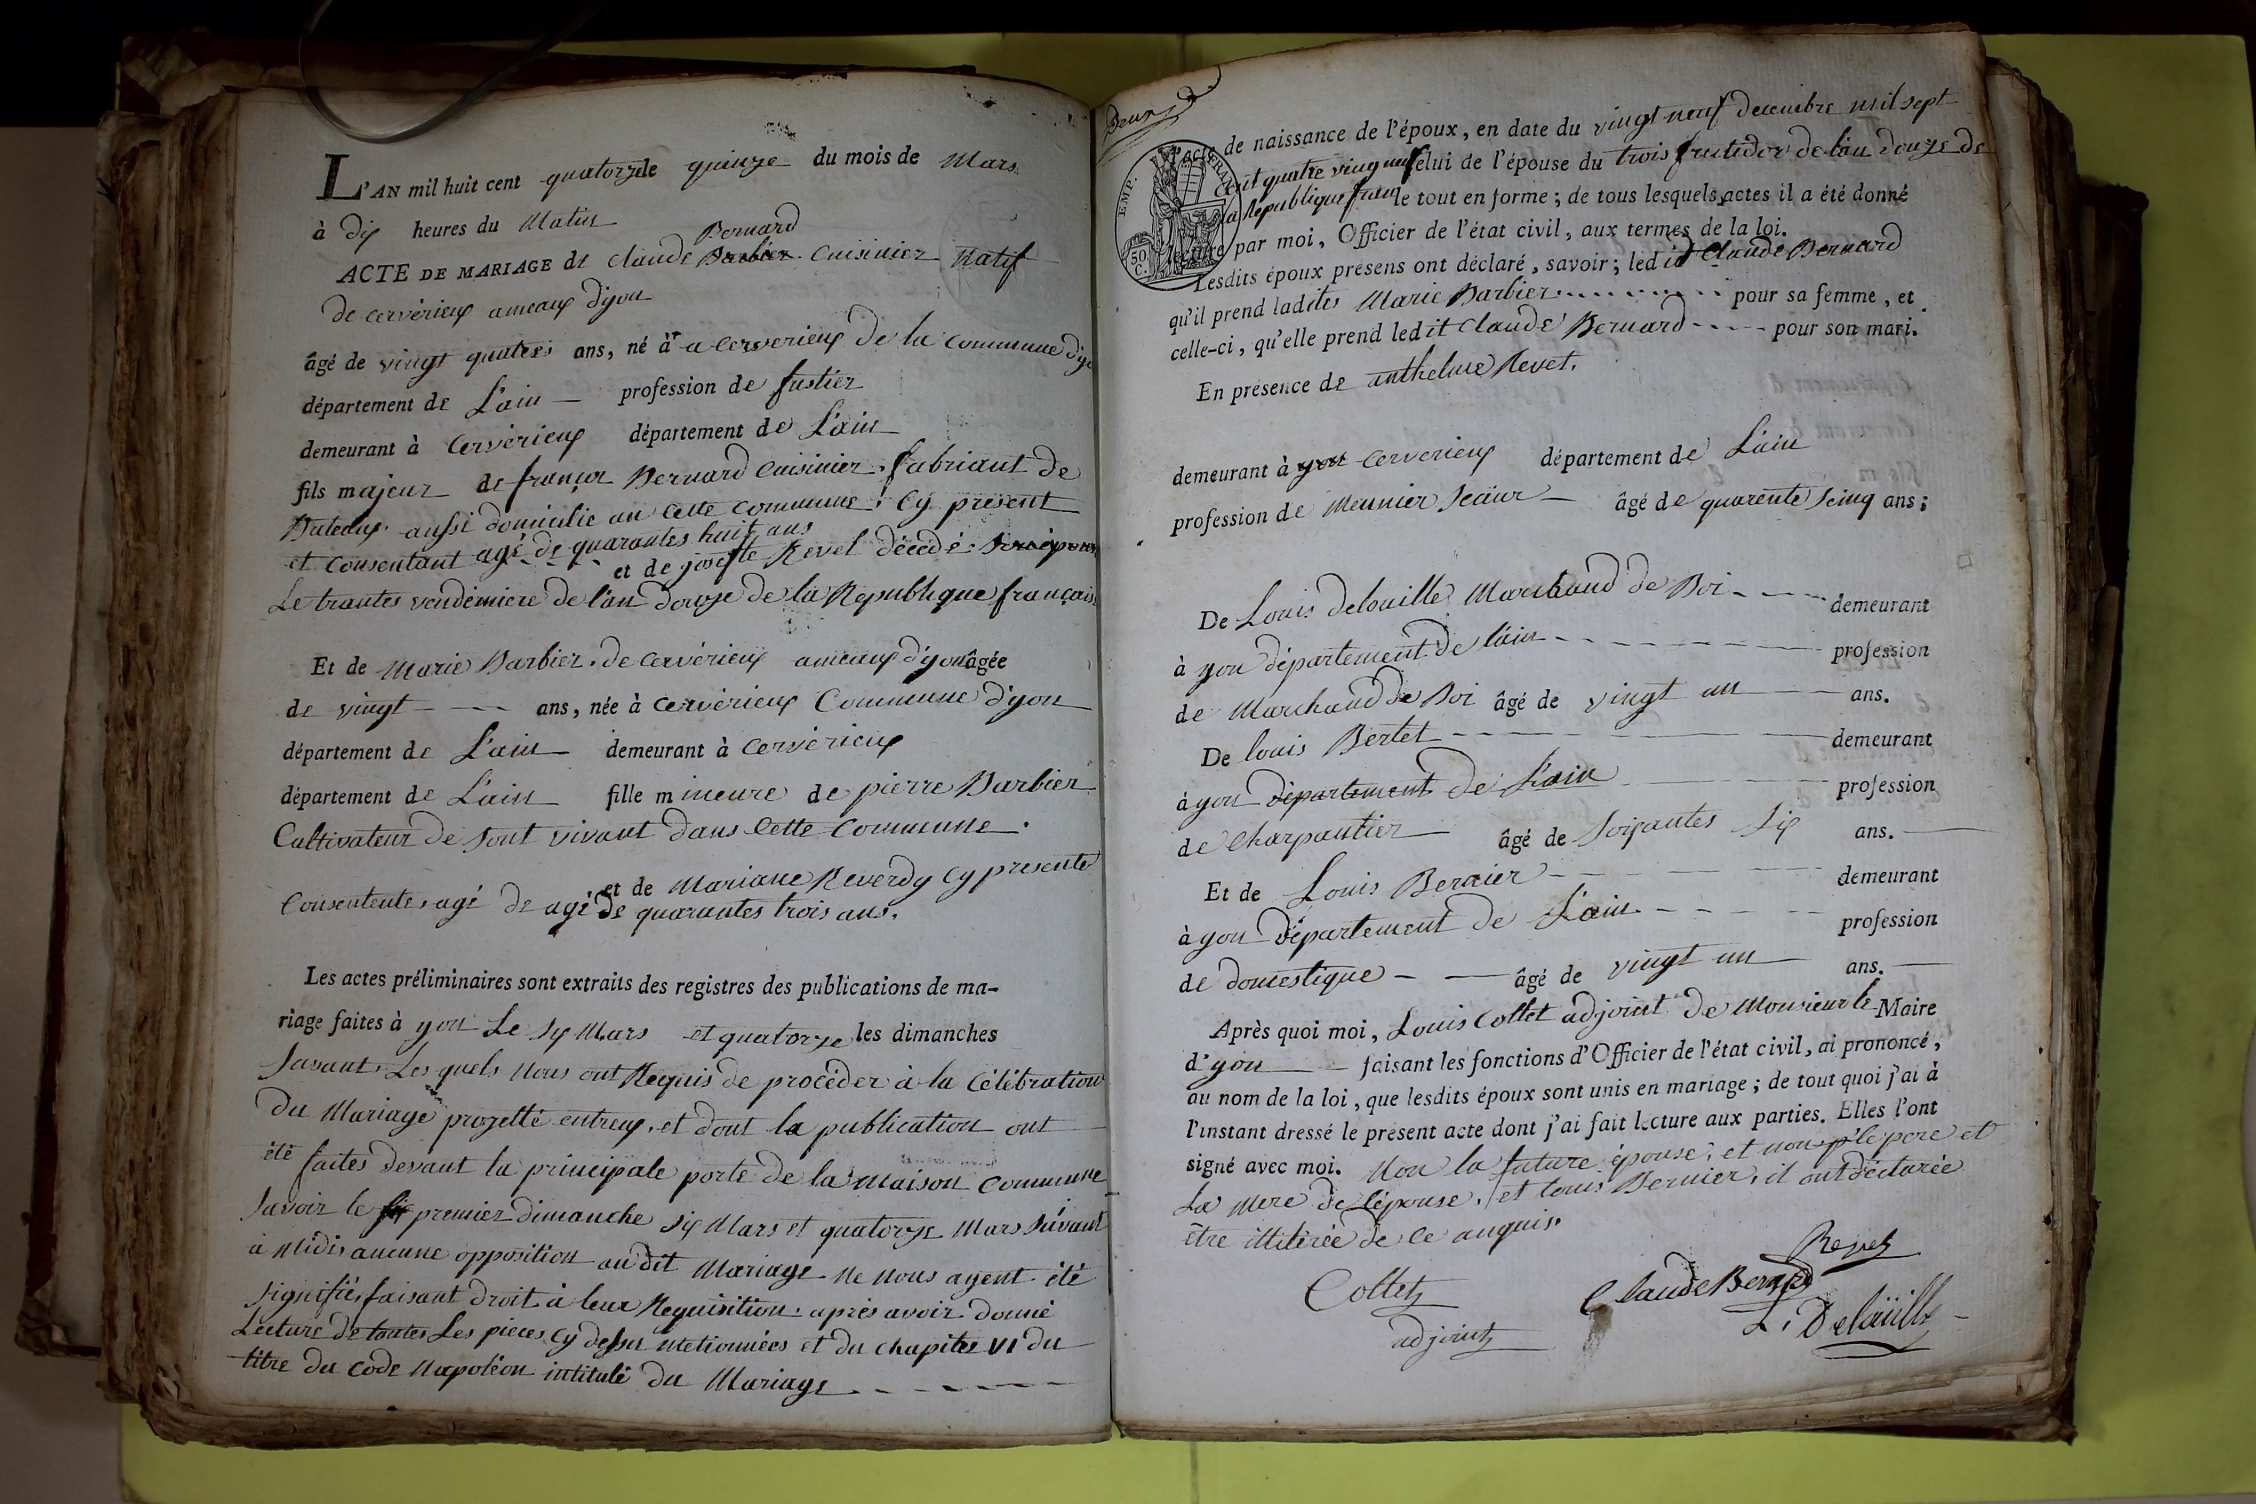 L'AN mil huit cent quatorze le quinze du mois de Mars
à dix heures du Matin
Bernard
ACTE DE MARIAGE de Claude Barbier Cuisinier Natif
de cervérieux ameaux d'yon
âgé de vingt quatres ans, né à a cerverieux de la commune d'yon
département de L'ain — profession de fustier
demeurant à Cervérieux département de L'ain
fils majeur de françoi Bernard Cuisinier fabriant de
Bateaux aussi domicilié au cette commune Cy présent
et Consentant agé de quarantes huit ans
et de josefte Revel décédé
Le trantes vendémiere de l'an douze de la République française
Et de Marie Barbier de cervérieux ameaux d'yon âgée
de vingt - - - ans, née à cervérieux Commune d'yon
département de L'ain demeurant à cervérieux
département de L'ain fille mineure de pierre Barbier
Cultivateur de sont vivant dans cette commune.
et de Mariane Reverdy Cy presente
Consentente agé de agé de quarantes trois ans.
Les actes préliminaires sont extraits des registres des publications de ma-
riage faites à yon Le six Mars et quatorze les dimanches
suvant Les quels nous ont Requis de procéder à la Célébration
du Mariage projetté entreux, et dont la publication ont
été faites devant la principale porte de la Maison Commune
savoir le premier dimanche six Mars et quatorze Mars suivant
a Midi, aucune opposition au dit Mariage ne nous ayent été
signifié, faisant droit à leur Requisition, après avoir donné
Lecture de toutes Les pieces Cy dessu metionnées et du chapitre VI du
titre du Code Napoléon intitulé du Mariage - - - - - -
l'acte de naissance de l'époux, en date du vingt neuf decembre mil sept
cent quatre ving neuf celui de l'épouse du trois fructidor de l'an douze de
la République le tout en forme ; de tous lesquels actes il a été donné
lecture par moi, Officier de l'état civil, aux termes de la loi.
EMP. FRAN.
50 C.
Lesdits époux présens ont déclaré, savoir ; ledit Claude Bernard
qu'il prend ladites Marie Barbier - - - - - pour sa femme, et
celle-ci, qu'elle prend ledit Claude Bernard - - - - pour son mari.
En présence de anthelme Revet.
demeurant à yon cerverieux département de L'ain
profession de Meunier Seäur — âgé de quarente seinq ans ;
De Louis delouille Marchand de Boi - - - - demeurant
à yon département de l'ain - - - - - profession
de Marchand de Boi âgé de vingt un — ans.
De louis Bertet - - - - demeurant
à yon département de L'ain — profession
de Charpantier — âgé de soixantes six ans. —
Et de Louis Bernier - - - - demeurant
à yon Département de L'ain - - - - profession
de domestique - — âgé de vingt un — ans. —
Après quoi moi, Louis Collet adjoint de Monsieur le Maire
d'yon — faisant les fonctions d'Officier de l'état civil, ai prononcé,
au nom de la loi, que lesdits époux sont unis en mariage ; de tout quoi j'ai à
l'instant dressé le présent acte dont j'ai fait lecture aux parties. Elles l'ont
signé avec moi. Non la future épouse, et non p' le pere et
La mere de L'épouse, et louis Bernier, il ont déclarée
être illiterée de ce anquis.
Revet
Collet Claude Bernard
adjoint L. Delaüille